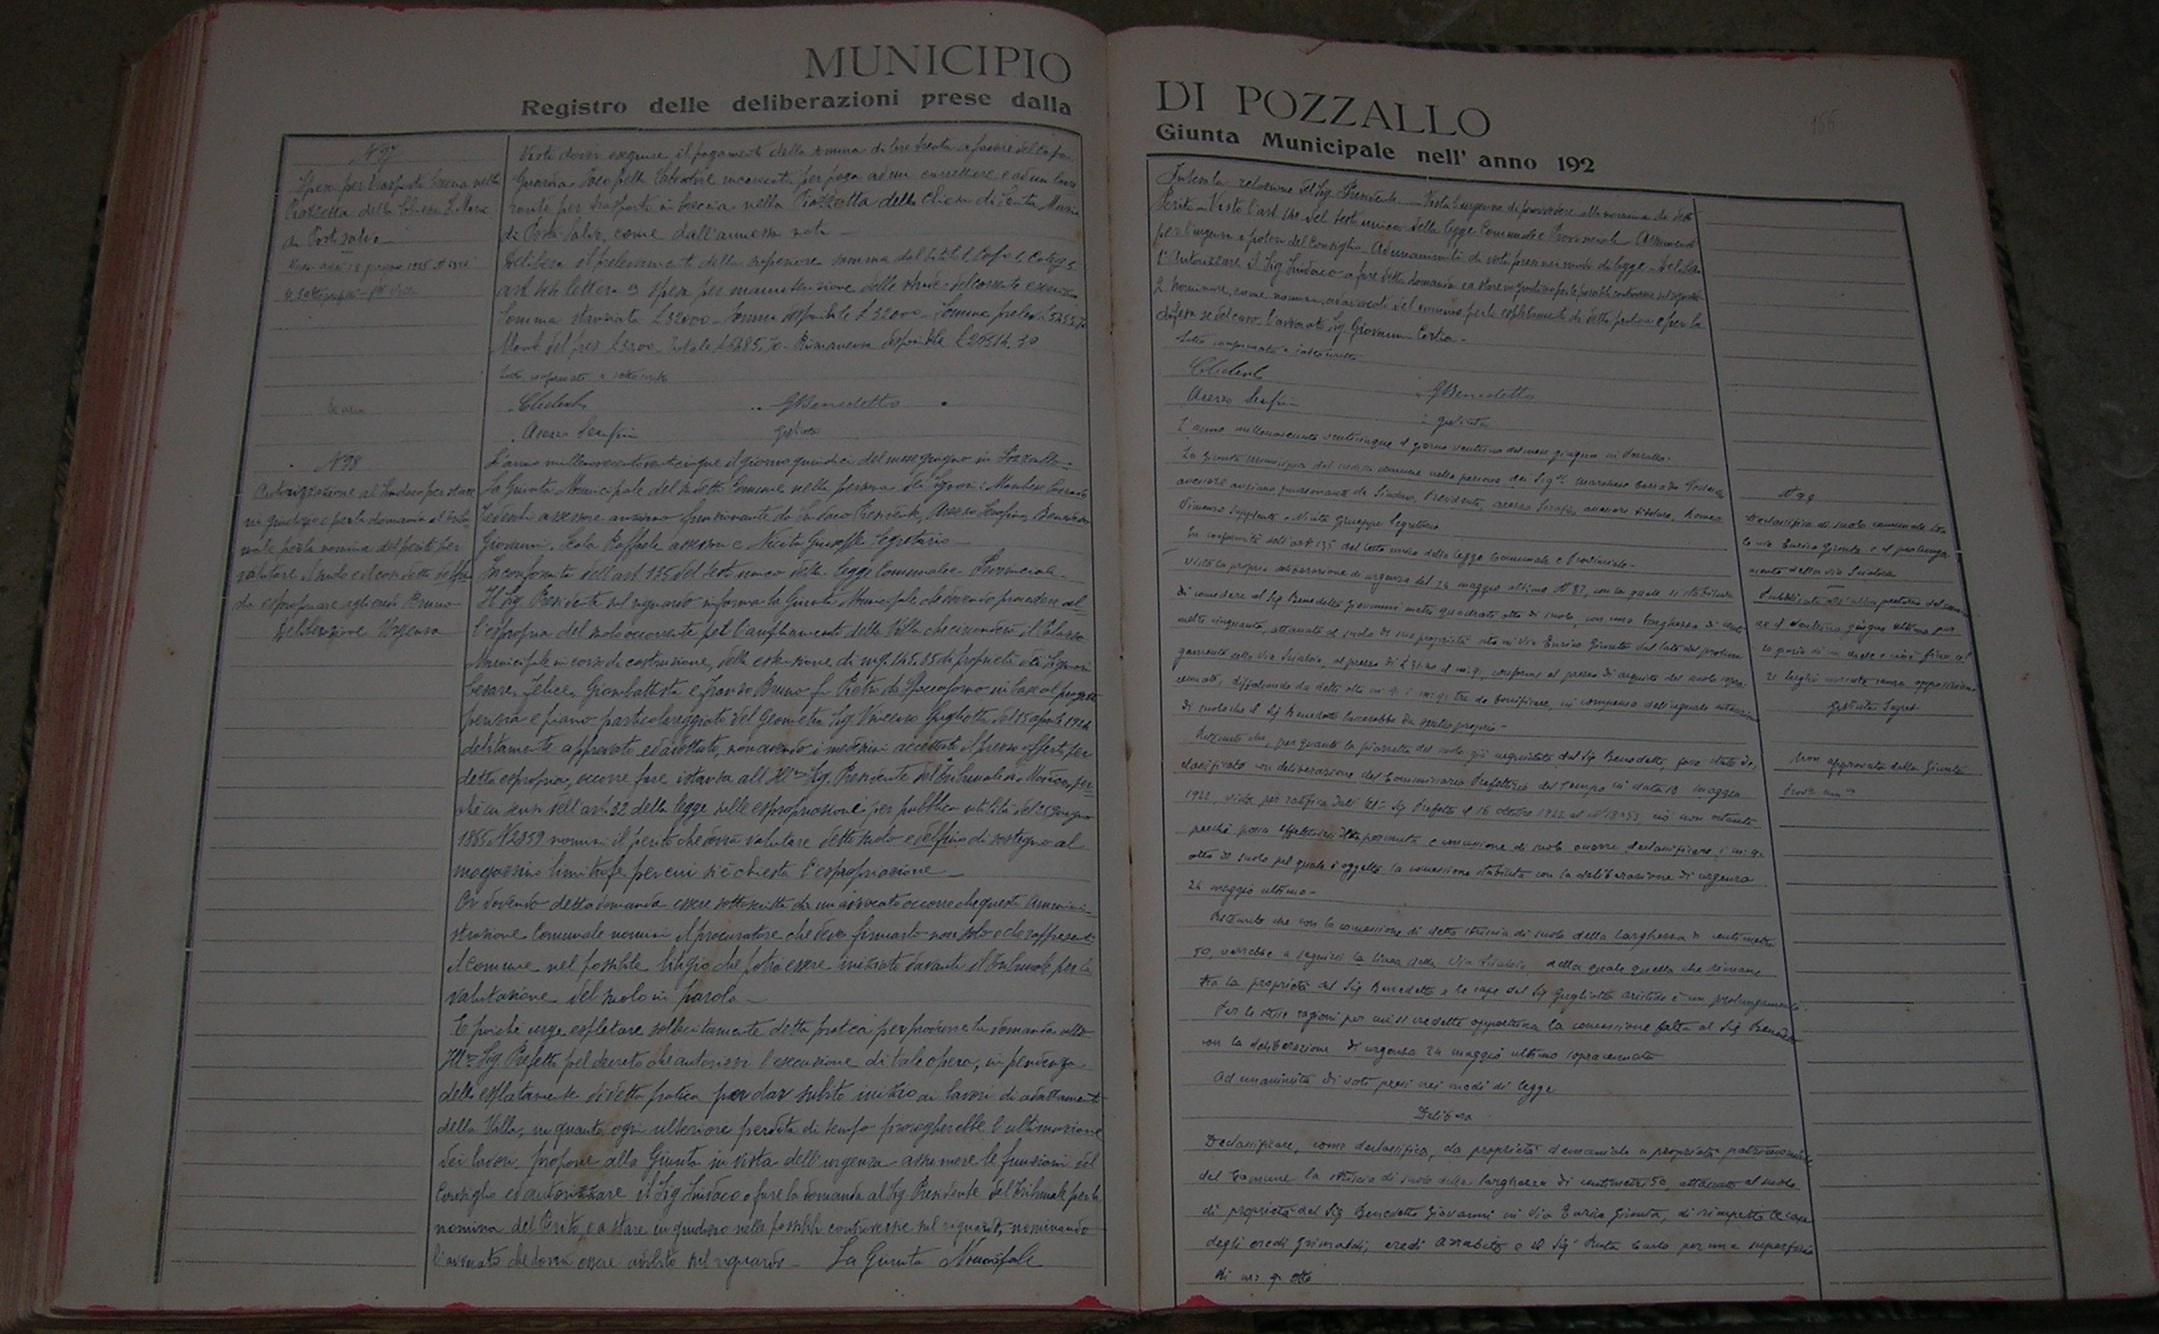 MUNICIPIO
Registro delle deliberazioni prese dalla
N 97
Spesa per trasporto breccia nella
Piazzetta della Chiesa S. Maria
di Porto Salvo
Visto doversi eseguire il pagamento della somma di lire trenta a favore del Capo
Guardia Salvatore incaricato per paga ad un carrettiere e ad un
per trasporto di breccia nella Piazzetta della Chiesa di Santa Maria
di Porto Salvo, come dall'annessa nota
Delibera il prelevamento della superiore somma dal
art. lettera spese per manutenzione delle strade del corrente esercizio
Somma stanziata £ 32000 - Somma disponibile £ 32000 - Somma prelev.
Mont. del pres. Totale £ 5485,70 - Rimanenza disponibile £ 26514,30
Letto confermato e sottoscritto
G Benedetto
Arezzo Serafin
N 98
Autorizzazione al Sindaco per stare
in giudizio e per la domanda al Tribu-
nale per la nomina del perito per
valutare il suolo
da espropriare agli eredi Bruno
Deliberazione Urgenza
L'anno millenovecentoventicinque il giorno quindici del mese giugno in Pozzallo
La Giunta Municipale del suddetto Comune nella persona dei Signori:
Tedeschi assessore anziano funzionante da Sindaco Presidente, Arezzo Serafino, Benedetto
Giovanni, Scala Raffaele assessori e Nicita Giuseppe Segretario
In conformità dell'art. 135 del testo unico della legge Comunale e Provinciale
Il Sig. Presidente sul riguardo informa la Giunta Municipale che dovendo procedere al-
l'esproprio del suolo occorrente pel l'ampliamento della Villa che circonderà il Palazzo
Municipale in corso di costruzione, della estensione di mq. 145.35 di proprietà dei Signori
Cesare, Felice, Giambattista e Bruno fu Pietro da Spaccaforno in base al progetto
perizia e piano particolareggiato del Geometra Sig. Vincenzo Gugliotta del 15 aprile 1924
debitamente approvato ed adottato, non avendo i medesimi accettato il prezzo offerto per
detto esproprio, occorre fare istanza all'Ill.mo Sig. Presidente del Tribunale di Modica, per-
chè ai sensi dell'art. 32 della legge sulle espropriazioni per pubblica utilità del 25 Giugno
1865 N 2359 nomini il perito che dovrà valutare detto suolo e di sostegno al
magazzino limitrofo per cui si è chiesta l'espropriazione
Or dovendo detta domanda essere sottoscritta da un avvocato occorre che questa Ammini-
strazione Comunale nomini il procuratore che deve firmarla non solo e che rappresenti
il Comune nel possibile litigio che potrà essere iniziato davanti il Tribunale per la
valutazione del suolo in parola
E poichè urge espletare sollecitamente detta pratica per produrre la domanda allo
Ill.mo Sig. Prefetto pel decreto che autorizzi l'esecuzione di tale opera, in pendenza
dello espletamento di detta pratica per dar subito inizio ai lavori di adattamento
della Villa, in quanto ogni ulteriore perdita di tempo l'ultimazione
dei lavori, propone alla Giunta in vista dell'urgenza assumere le funzioni del
Consiglio ed autorizzare il Sig. Sindaco a fare la domanda al Sig. Presidente del Tribunale per la
nomina del Perito, e a stare in giudizio nelle possibili controversie sul riguardo, nominando
l'avvocato che dovrà essere adibito sul riguardo - La Giunta Municipale
DI POZZALLO
Giunta Municipale nell' anno 192
166
Intesa la relazione del Sig. Presidente - Vista l'urgenza di provvedere alla nomina di detto
Perito - Visto l'art. 140 del testo unico della legge Comunale e Provinciale - Assumendo
per l'urgenza i poteri del Consiglio - Ad unanimità di voti presi nei modi di legge - Delibera
1° Autorizzare il Sig. Sindaco a fare detta domanda e a stare in giudizio per le possibili controversie sul riguardo
2 Nominare, come nomina, ad avvocato del comune per lo espletamento di detta pratica e per la
difesa se del caso l'avvocato Sig. Giovanni
Letto confermato e sottoscritto
G Benedetto
Arezzo Serafin
L'anno millenovecentoventicinque il giorno ventuno del mese giugno in Pozzallo
La Giunta Municipale del suddetto comune nelle persone dei Sigri Corrado Tedeschi
assessore anziano funzionante da Sindaco, Presidente, Arezzo Serafino assessore titolare,
Vincenzo supplente e Nicita Giuseppe Segretario
In conformità dell'art. 135 del testo unico della legge Comunale e Provinciale
Vista la propria deliberazione di urgenza del 24 maggio ultimo N 87, con la quale si stabiliva
di concedere al Sig. Benedetto Giovanni metri quadrati otto di suolo, con una larghezza di centi-
metri cinquanta, attaccato al suolo di sua proprietà sito in via Enrico Giunta dal lato del prolun-
gamento della Via Scialoia, al prezzo di al m.q. conforme al prezzo di acquisto del suolo sopra-
cennato, diffalcando da detti otto m.q. i m.q. tre da bonificare, in compenso dell'uguale estensione
di suolo che il Sig. Benedetto lascerebbe da suolo proprio
Ritenuto che, per quanto la piazzetta del suolo già acquistato dal Sig. Benedetto, fosse stata de-
classificata con deliberazione del Commissario Prefettizio del tempo in data 18 maggio
1922, vista per ratifica dall'Ill.mo Sig. Prefetto il 16 ottobre 1922 al N 18453 ciò non ostante
perchè possa effettuirsi detta permuta e concessione di suolo occorre declassificare i m.q.
otto di suolo pel quale è oggetto la concessione stabilita con la deliberazione di urgenza
24 maggio ultimo
Ritenuto che con la concessione di detta striscia di suolo della larghezza di centimetri
50, verrebbe a seguirsi la linea della Via Scialoia, della quale quella che rimane
tra la proprietà del Sig. Benedetto e le case del Sig. Gugliotta Aristide è un prolungamento
Per le stesse ragioni per cui si credette opportuna la concessione fatta al Sig. Benedetto
con la deliberazione di urgenza 24 maggio ultimo sopracennata
Ad unanimità di voti presi nei modi di legge
Delibera
Declassificare, come declassifica, da proprietà demaniale a proprietà patrimoniale
del Comune la striscia di suolo della larghezza di centimetri 50, attaccato al suolo
di proprietà del Sig. Benedetto Giovanni in Via Enrico Giunta, di rimpetto le case
degli eredi Grimaldi, eredi e il Sig. Carlo per una superficie
di m. q. otto
N 99
Declassifica di suolo comunale tra
la via Enrico Giunta e il prolunga-
mento della via Scialoia
Pubblicata all'albo pretorio del comu-
ne il ventuno giugno ultimo per
lo spazio di un mese e cioè fino al
21 luglio senza opposizione
G Nicita Segret
Non approvata dalla Giunta